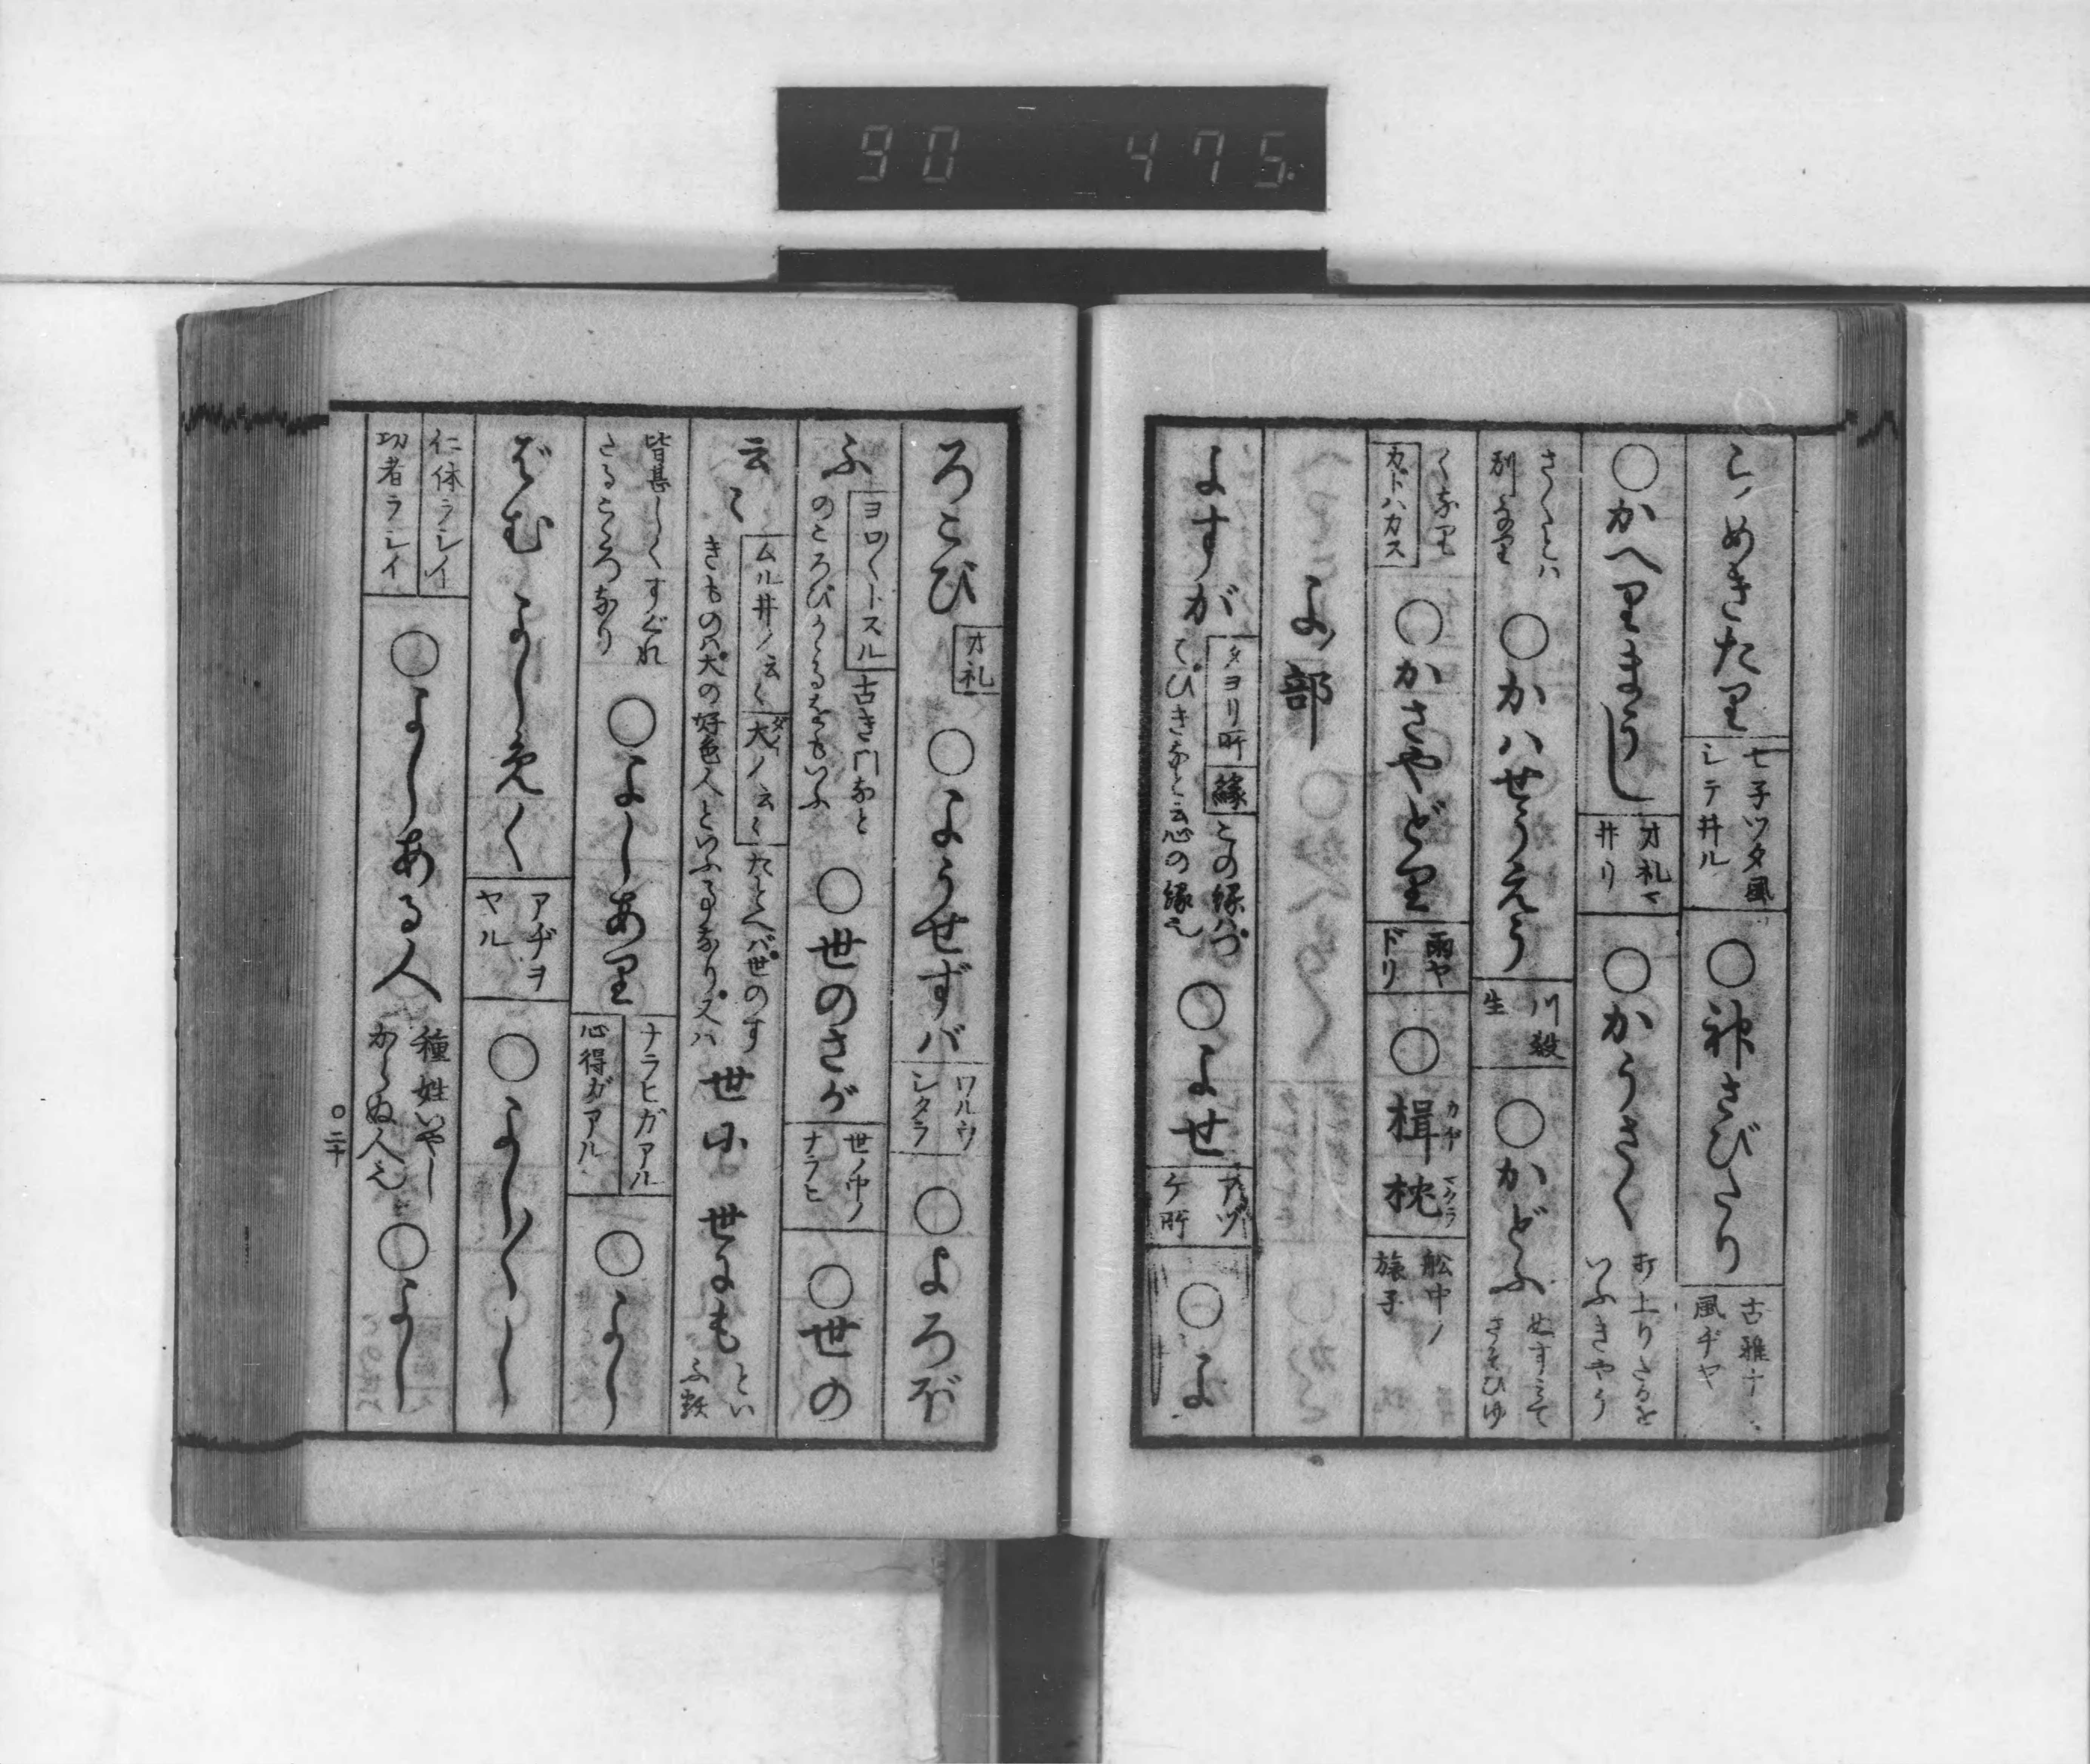 90 475
らめきたり
七子ツタ風
シテ井ル
○神さびたり
古雅ナ
風ヂヤ
○かへりまうし
オ礼マ
井リ
○かうさく
さくとハ
別なり
○かハせうえう
川殺
生
○かどふ
くなり
カドハカス
○かさやどり
雨ヤ
ドリ
○楫枕
カヂ マクラ
船中ノ
旅子
よノ部
よすが
タヨリ所
縁
この縁ハづ
てびきなと云心の縁也
○よせ
ケ所
○よ
ろこび
オ礼
○ようせずバ
ワルウ
シタラ
○よろぼ
ふ
ヨロ〱トスル
古き門なと
のころびかゝるをもいふ
○世のさが
世ノ中ノ
ナラヒ
○世の
云々
ムル井ノ云々
大ノ云々
ダイ
たとへバ世のす
きものハ大の好色人といふ事なり又ハ
世に 世にも
とい
ふ類
皆甚しくすぐれ
さるこゝろなり
○よしあり
ナラヒガアル
心得ガアル
○よし
ばむ よしめく
アヂヲ
ヤル
○よし〱し
仁体ラシイ
功者ラシイ
○よしある人
種姓いやし
からぬ人也
○よし
○二十